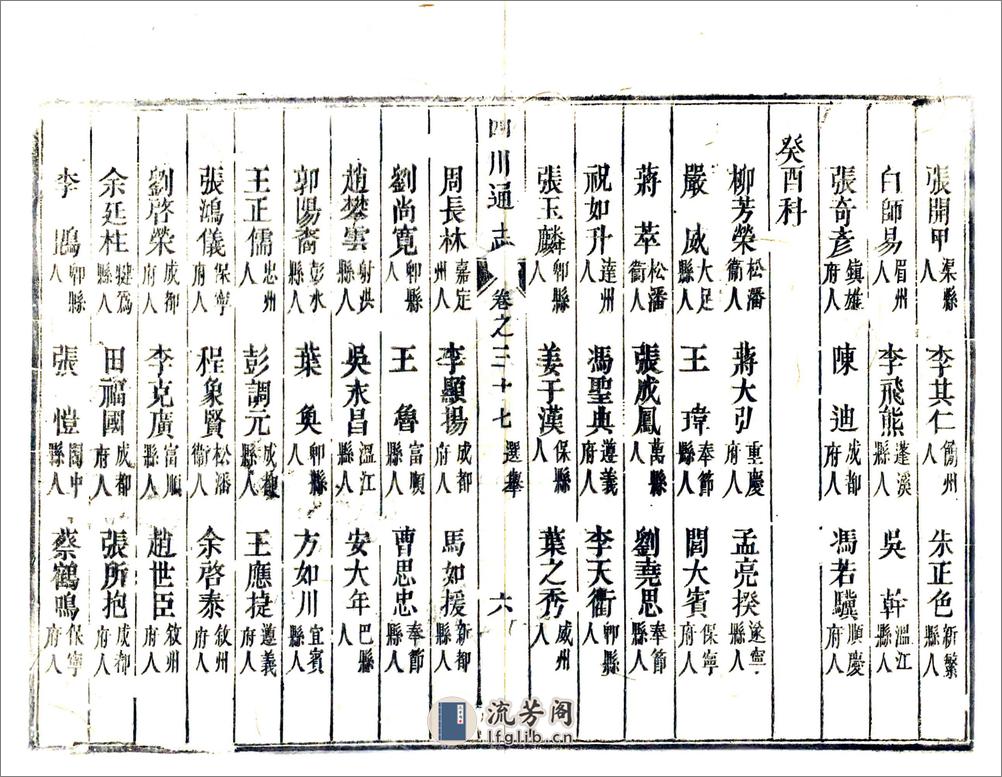 張開甲渠縣人 李其仁瀘州人 朱正色新繁縣人
白師易眉州人 李飛熊蓬溪縣人 吳幹溫江縣人
張奇彥鎮雄府人 陳迪成都府人 馮若驥順慶府人
癸酉科
柳芳榮松潘衞人 蔣大弘重慶府人 孟亮揆遂寧縣人
嚴威大足縣人 王瑋奉節縣人 閻大賓保寧府人
蔣萃松潘衞人 張成鳳萬縣人 劉堯思奉節縣人
祝如升達州人 馮聖典遵義府人 李天衢郫縣人
張玉麟郫縣人 姜于漢保縣人 葉之秀威州人
四川通志 卷之三十七 選舉 六
周長林嘉定州人 李顯揚成都府人 馬如援新都縣人
劉尚寬郫縣人 王魯富順縣人 曹思忠奉節縣人
趙攀雲射洪縣人 吳永昌溫江縣人 安大年巴縣人
郭陽裔彭水縣人 葉奐郫縣人 方如川宜賓縣人
王正儒忠州人 彭調元成都縣人 王應捷遵義府人
張鴻儀保寧府人 程象賢松潘衞人 余啓泰敘州府人
劉啓榮成都府人 李克廣富順縣人 趙世臣敘州府人
余廷柱犍爲縣人 田福國成都府人 張所抱成都府人
李鵾郫縣人 張愷閬中縣人 蔡鶴鳴保寧府人
流芳阁
lfglib.cn